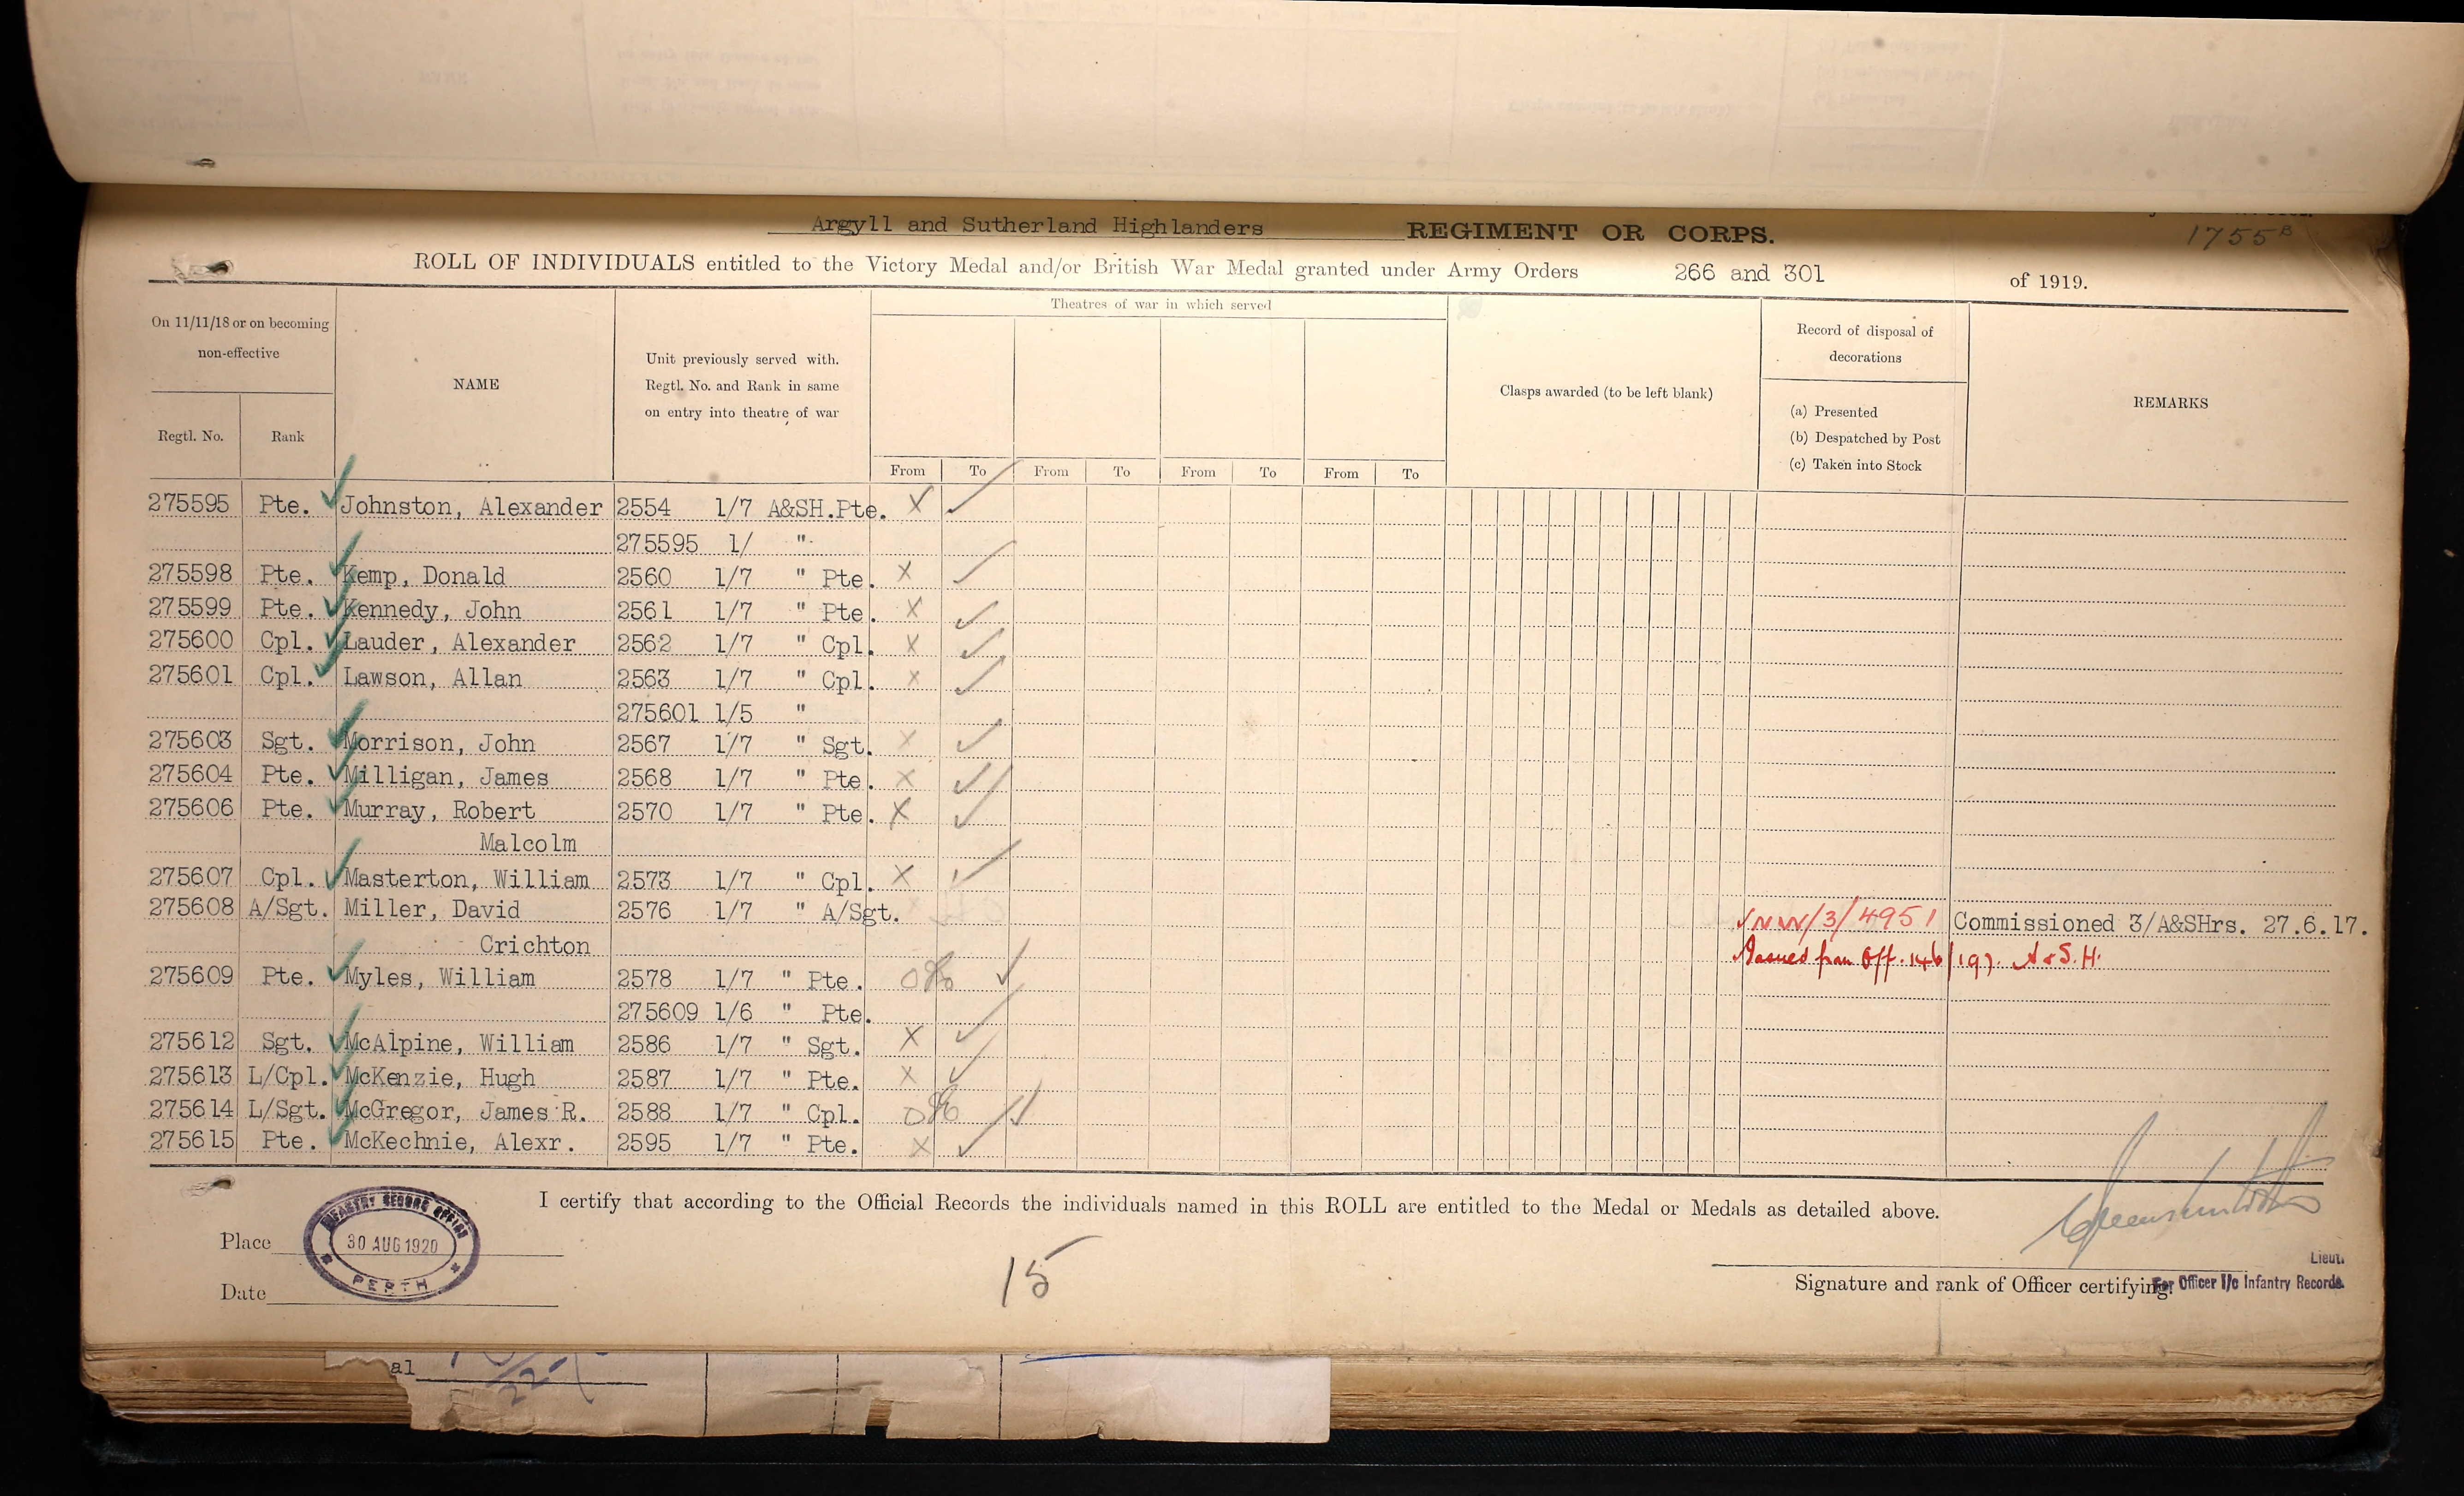 1755 B
Argyll and Sutherland Highlanders REGIMENT OR CORPS.
ROLL OF INDIVIDUALS entitled to the Victory Medal and/or British War Medal granted under Army Orders 266 and 301 of 1919.
On 11/11/18 or on becoming
non-effective
Regtl. No. Rank
NAME
Unit previously served with.
Regtl. No. and Rank in same
on entry into theatre of war
Theatres of war in which served
From To From To From To From To
Clasps awarded (to be left blank)
Record of disposal of
decorations
(a) Presented
(b) Despatched by Post
(c) Taken into Stock
REMARKS
275595 Pte. Johnston, Alexander 2554 1/7 A&SH.Pte. X
275595 1/ "
275598 Pte. Kemp, Donald 2560 1/7 " Pte. X
275599 Pte. Kennedy, John 2561 1/7 " Pte. X
275600 Cpl. Lauder, Alexander 2562 1/7 " Cpl. X
275601 Cpl. Lawson, Allan 2563 1/7 " Cpl. X
275601 1/5 "
275603 Sgt. Morrison, John 2567 1/7 " Sgt. X
275604 Pte. Milligan, James 2568 1/7 " Pte. X
275606 Pte. Murray, Robert 2570 1/7 " Pte. X
Malcolm
275607 Cpl. Masterton, William 2573 1/7 " Cpl. X
275608 A/Sgt. Miller, David 2576 1/7 " A/Sgt. NW/3/4951 Commissioned 3/A&SHrs. 27.6.17.
Crichton Issued from Off. 146/197 A&S.H.
275609 Pte. Myles, William 2578 1/7 " Pte.
275609 1/6 " Pte.
275612 Sgt. McAlpine, William 2586 1/7 " Sgt. X
275613 L/Cpl. McKenzie, Hugh 2587 1/7 " Pte. X
275614 L/Sgt. McGregor, James R. 2588 1/7 " Cpl.
275615 Pte. McKechnie, Alexr. 2595 1/7 " Pte. X
I certify that according to the Official Records the individuals named in this ROLL are entitled to the Medal or Medals as detailed above.
Place
INFANTRY RECORD OFFICE
30 AUG 1920
PERTH
Date
15
Lieut.
Signature and rank of Officer certifying.
For Officer I/c Infantry Records.
al
22